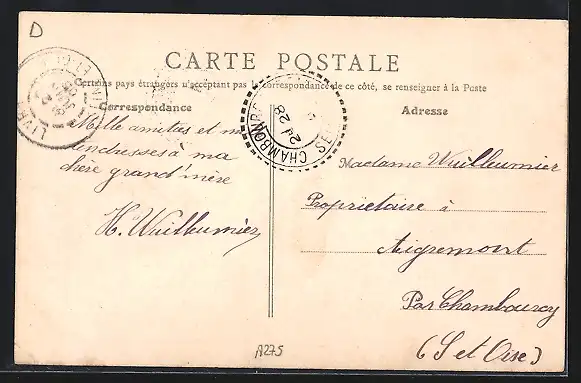 D
CARTE POSTALE
Certains pays étrangers n'acceptant pas la correspondance de ce côté, se renseigner à la Poste
Correspondance
Adresse
Mille amitiés et m
tendresses à ma
chère grand'mère
H. Wuilleumier
CHAMBOURC
28
Madame Wuilleumier
Propriétaire à
Aigremont
Par Chambourcy
(S et Oise)
A275